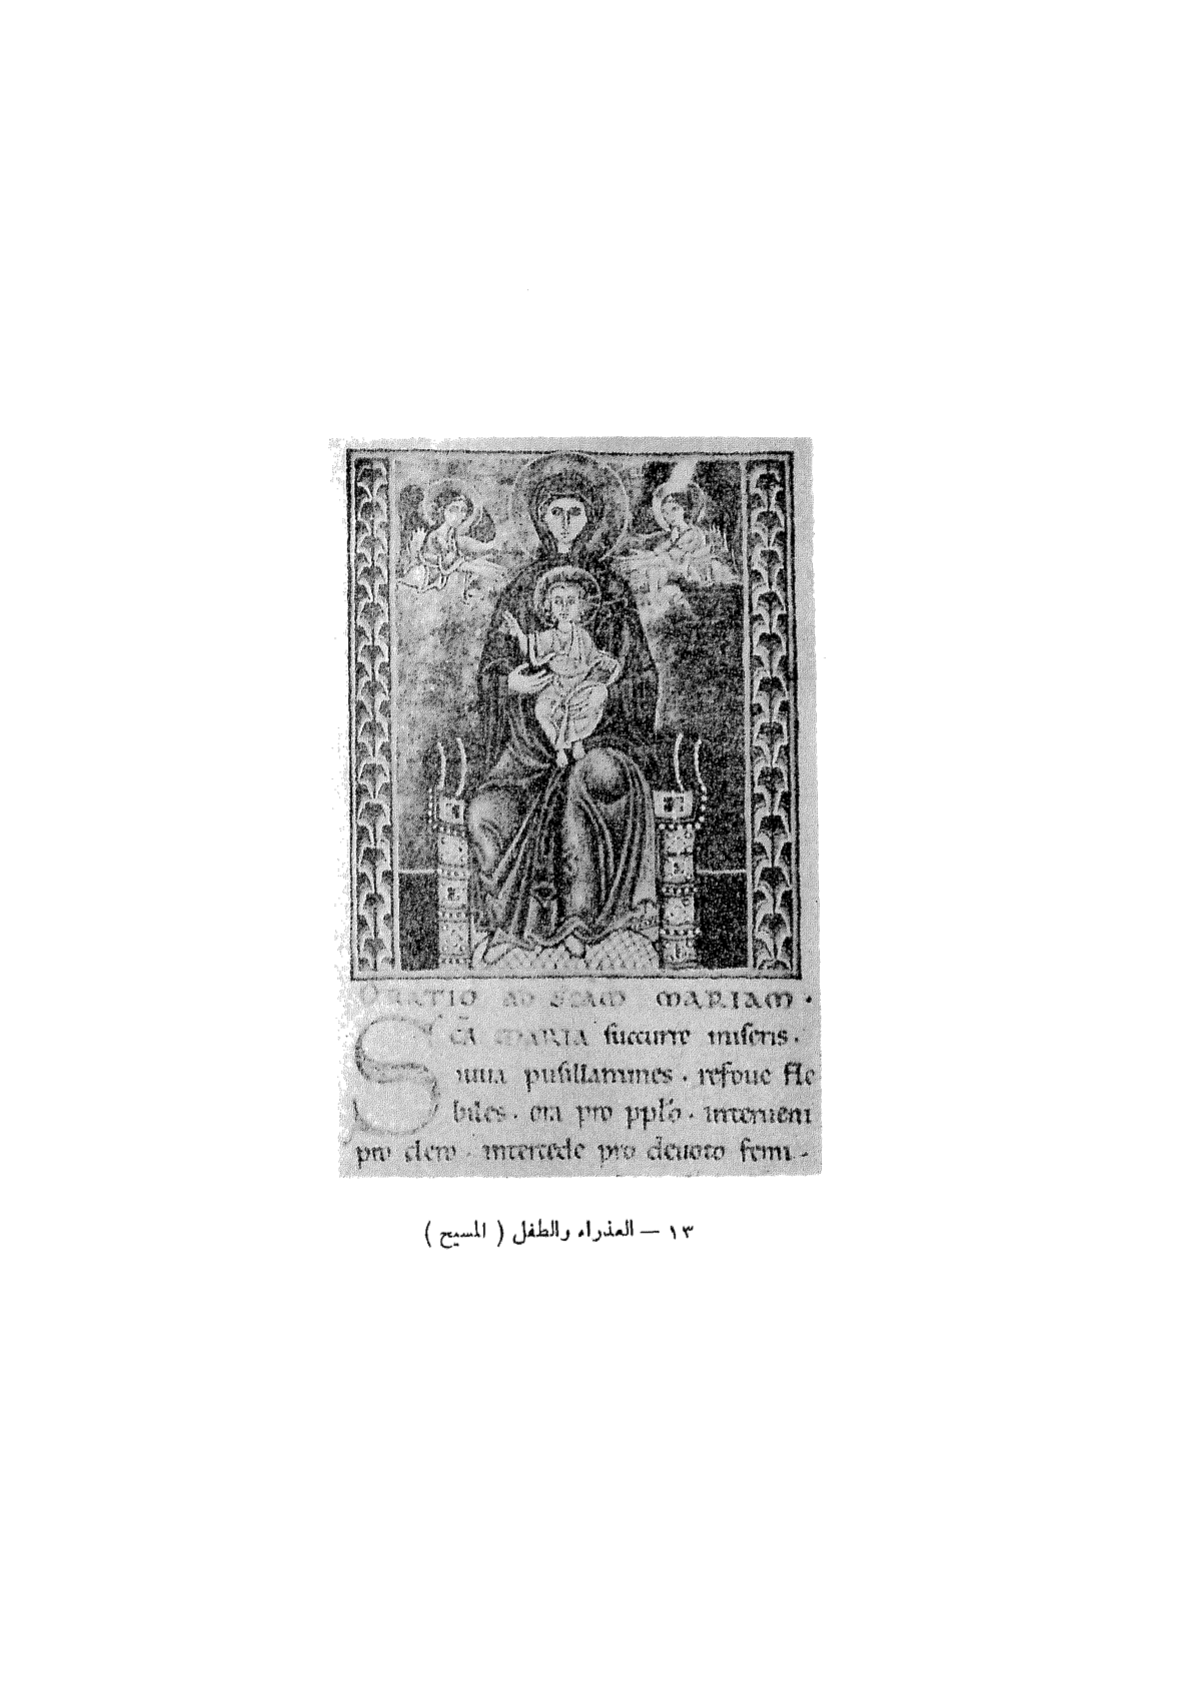 ORATIO AD SCAM MARIAM ·
SCA MARIA succurre miseris ·
iuua pusillanimes · refoue fle
biles · ora pro pplo · interueni
pro clero · intercede pro deuoto femi ·
١٣ — العذراء والطفل ( المسيح )